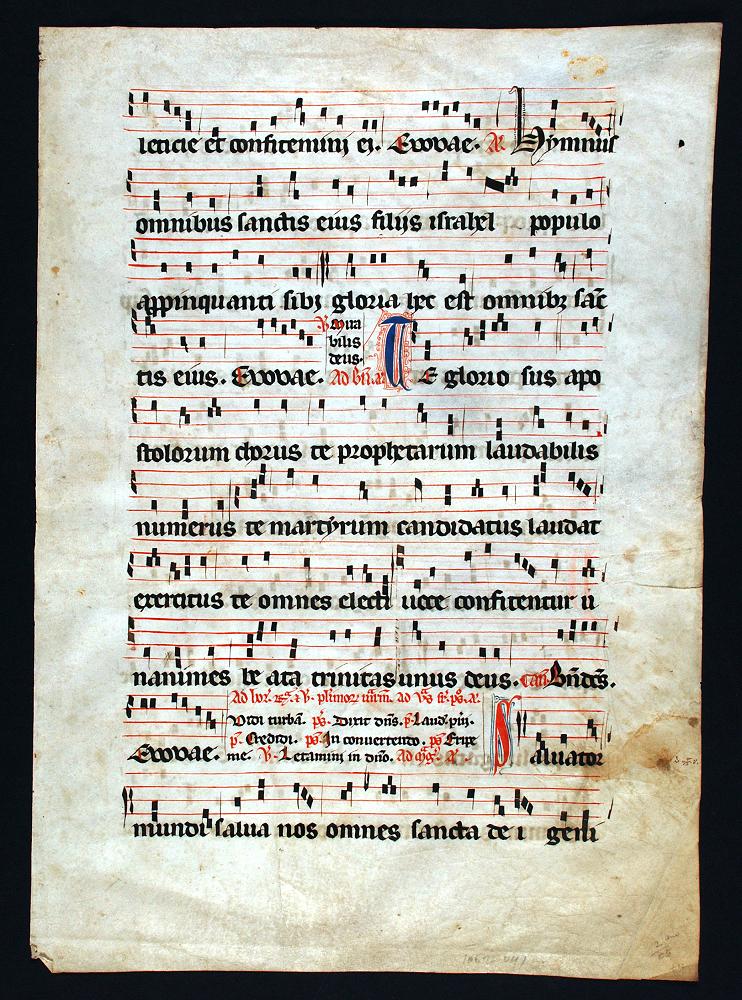 leticie et confitemini ei. Evovae. A. Hymnus
omnibus sanctis eius filijs israhel populo
appinquanti sibi gloria hec est omnibz sac
tis eius. Evovae.
mira
bilis
deus.
Ad bn. a. TE glorio sus apo
stolorum chorus te prophetarum laudabilis
numerus te martyrum candidatus laudat
exercitus te omnes electi voce confitentur u
nanimes be ata trinitas unus deus. Bndcs.
Evovae.
Vidi turbam. ps. Dixit dns. p. Laud. pueri.
p. Credidi. ps. In convertendo. ps. Eripe
me. V. Letamini in dno. Ad mg. a. Saluator
mundi salva nos omnes sancta de i geni